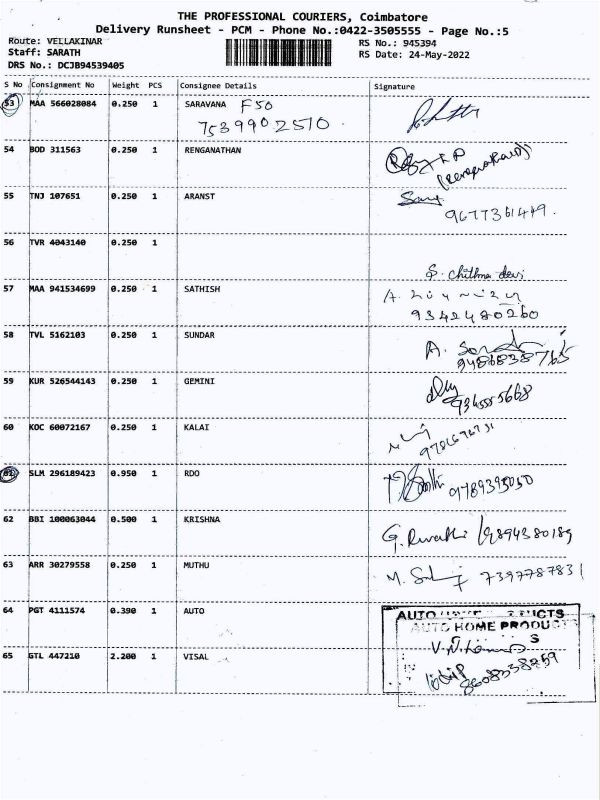 THE PROFESSIONAL COURIERS, Coimbatore
Delivery Runsheet - PCM - Phone No.:0422-3505555 - Page No.:5
Route: VELLAKINAR
Staff: SARATH
DRS No.: DCJB94539405
RS No.: 945394
RS Date: 24-May-2022
S No Consignment No Weight PCS Consignee Details Signature
53 MAA 566028084 0.250 1 SARAVANA F50
7539902570
54 BOD 311563 0.250 1 RENGANATHAN
55 TNJ 107651 0.250 1 ARANST
9677361449
56 TVR 4043140 0.250 1
S. chithra devi
57 MAA 941534699 0.250 1 SATHISH
9342480260
58 TVL 5162103 0.250 1 SUNDAR
9486838765
59 KUR 526544143 0.250 1 GEMINI
60 KOC 60072167 0.250 1 KALAI
61 SLM 296189423 0.950 1 RDO
9789395050
62 BBI 100063044 0.500 1 KRISHNA G. Revathi 9894380189
63 ARR 30279558 0.250 1 MUTHU M. 7397787831
64 PGT 4111574 0.390 1 AUTO
AUTO HOME PRODUCTS
AUTO HOME PRODUCTS
65 GTL 447210 2.200 1 VISAL
8608338259